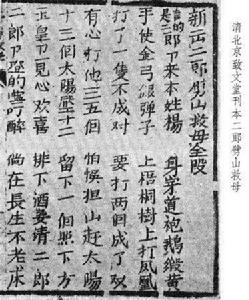 清北京致文堂刊本二郎劈山救母
新出二郎劈山救母全段
言的是二郎爷本姓楊 身穿道袍鵝緞黃
手使金弓銀彈子 上梧桐樹上打鳳凰
打了一隻不成对 要打两個成了双
有心打他三五個 怕候担山赶太陽
十三個太陽壓十二 留下一個照下方
玉皇爷見心欢喜 排下酒宴請二郎
二郎爷吃的 醉 倘在長生不老床